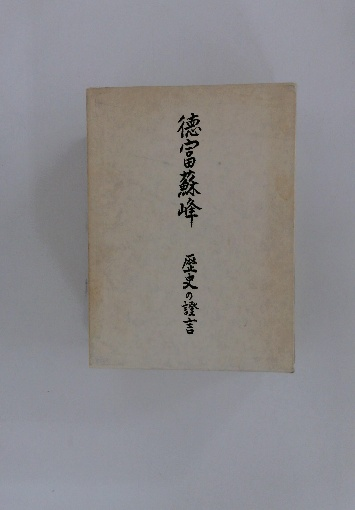 德富蘇峰
歷史の證言